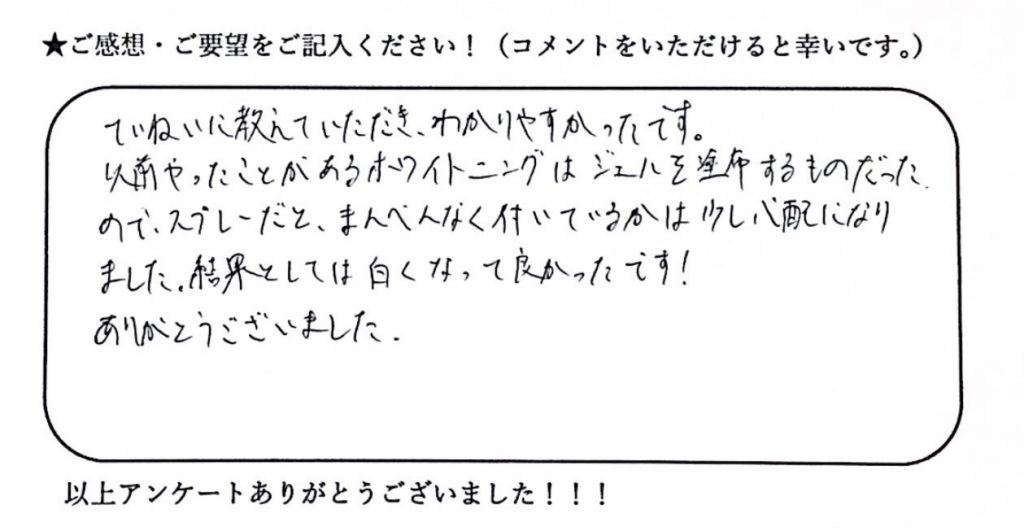 ★ご感想・ご要望をご記入ください！（コメントをいただけると幸いです。）
ていねいに教えていただき、わかりやすかったです。
以前やったことがあるホワイトニングはジェルを塗布するものだった
ので、スプレーだと、まんべんなく付いているかは少し心配になり
ました。結果としては白くなって良かったです！
ありがとうございました.
以上アンケートありがとうございました！！！